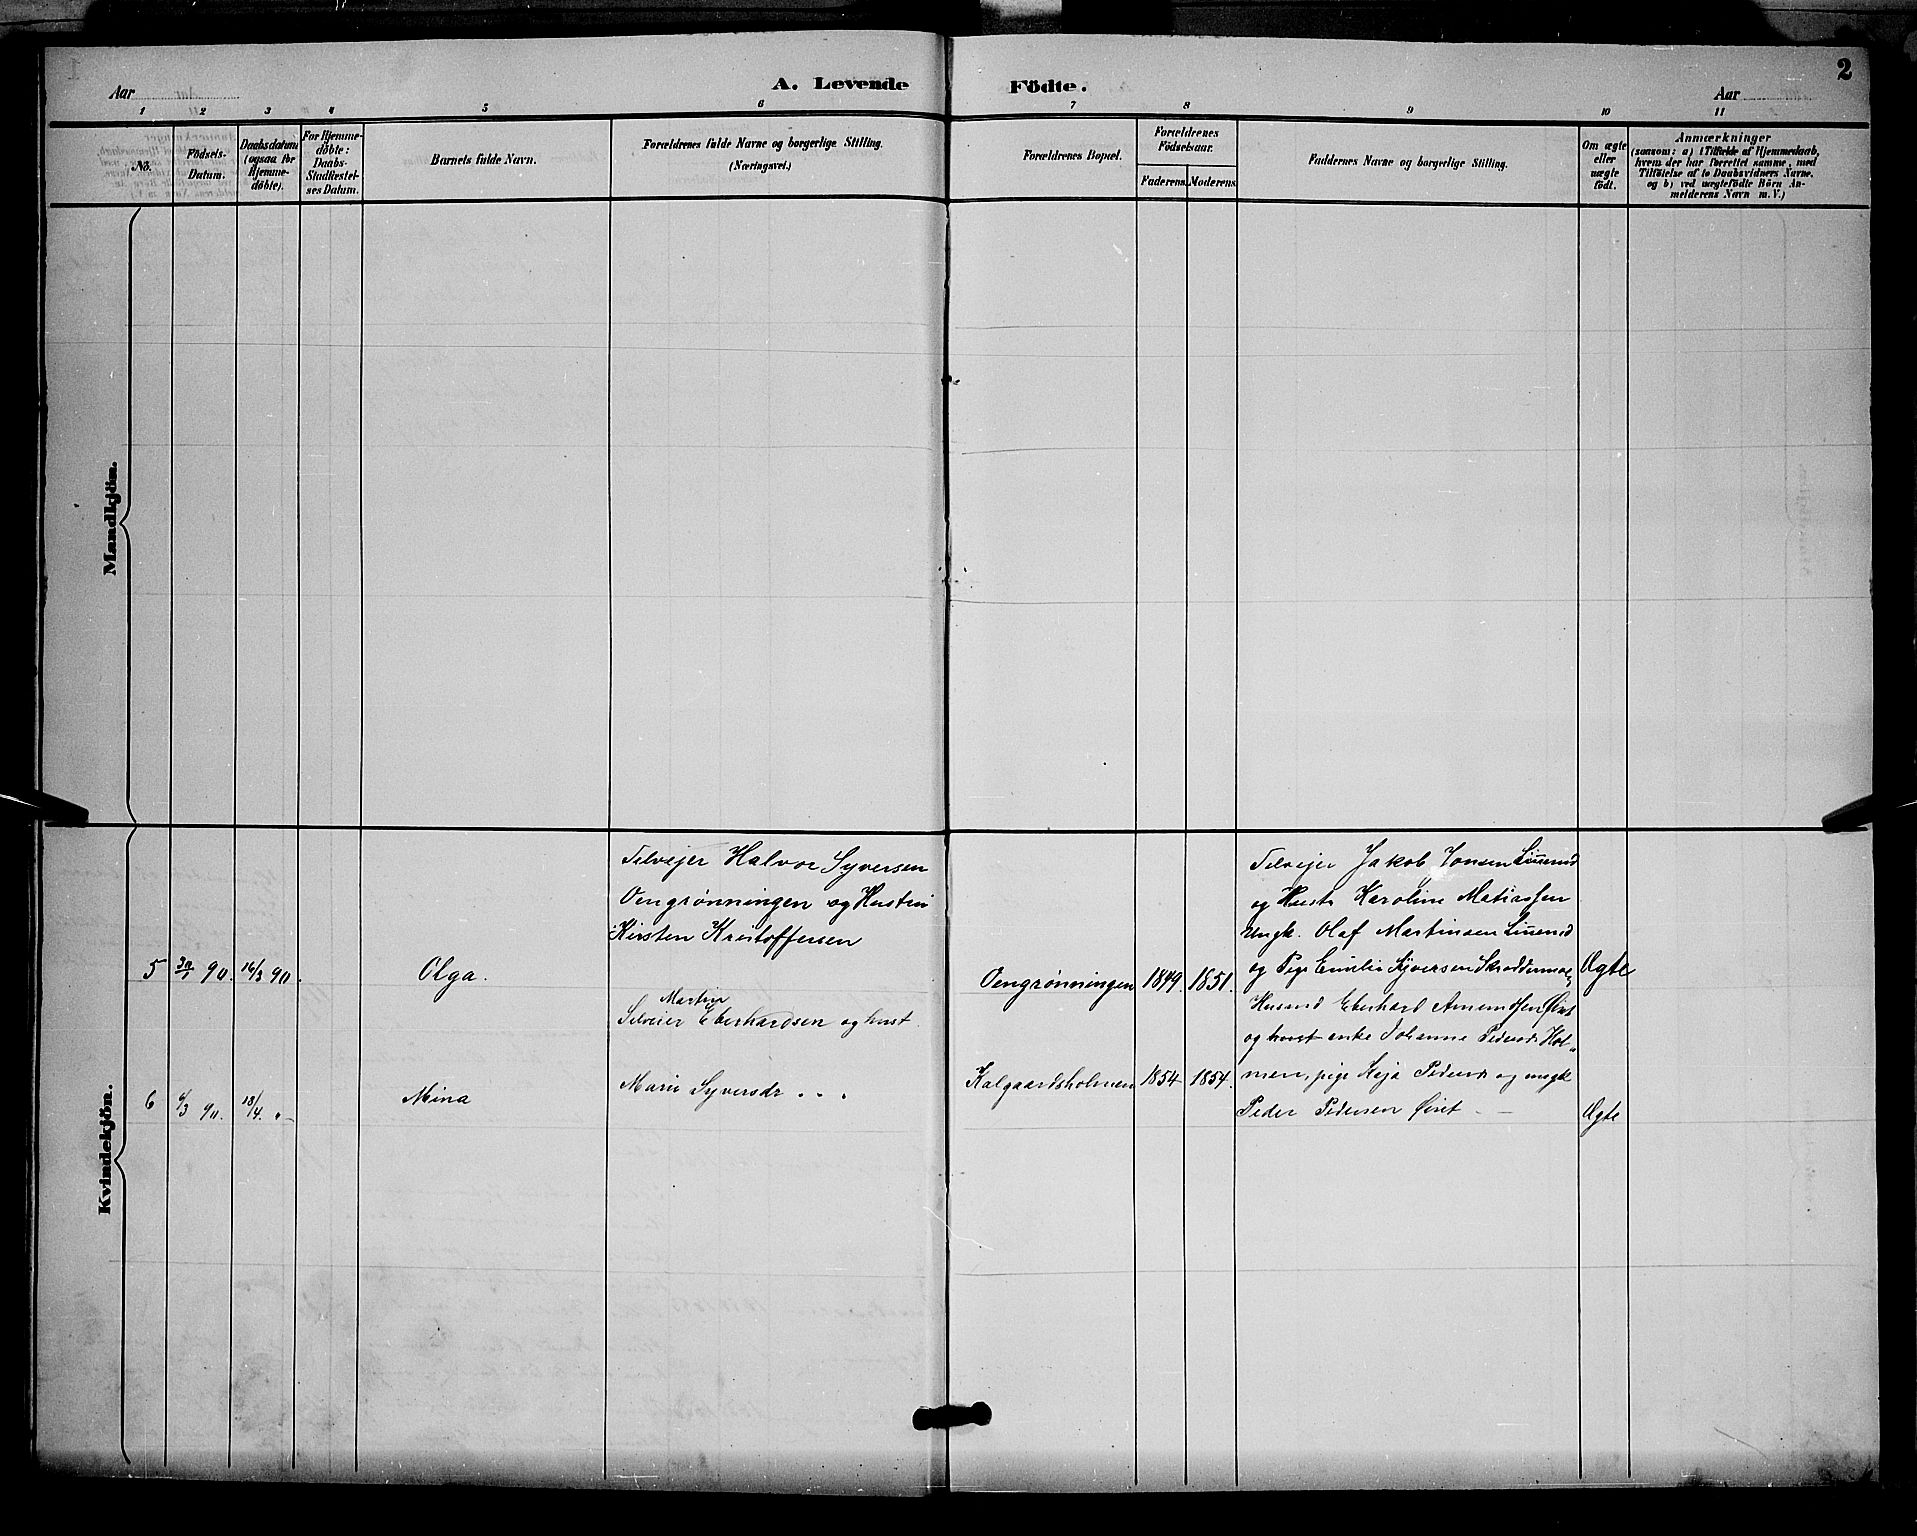 2
A. Levende Födte.
Aar
Aar
1 2 3 4 5 6 7 8 9 10 11
No.
Födsels-
Datum.
Daabsdatum
(ogsaa for
Hjemme-
döbte).
For Hjemme-
döbte:
Daabs-
Stadfæstel-
ses Datum.
Barnets fulde Navn.
Forældrenes fulde Navne og borgerlige Stilling.
(Næringsvei.)
Forældrenes Bopæl.
Forældrenes
Födselsaar.
Faderens. Moderens.
Faddernes Navne og borgerlige Stilling.
Om ægte
eller
uægte
födt.
Anmærkninger
(saasom: a) i Tilfælde af Hjemmedaab,
hvem der har forrettet samme, med
Tilföielse af to Daabsvidners Navne,
og b) ved uægtefödte Börn An-
melderens Navn m. V.)
Mandkjön.
Kvindekjön.
5
90.
16/3 90.
Olga.
Selvejer Halvor Syversen
Oengrønningen og Hustru
Kirsten Kristoffersen
Oengrønningen
1849.
1851.
Selvejer Jakob Jonsen
og Hust. Karoline Matiassen
ungk. Olaf Martinsen
og Pige Emilie Syversen
Ægte
6
6/3 90.
13/4. " -
Mina
Martin
Selveier Eberhardsen og hust.
Marie Syversdr . . .
Kalgaardsholmen
1854
1854.
Husmd Eberhard Amundsen Øiset
og enke Johanne Pedersd. Hol-
men, pige Kaja Pedersd og ungk
Peder Pedersen Øiset -
Ægte